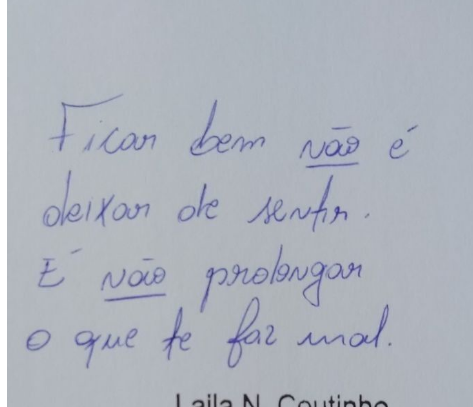 Ficar bem não é
deixar de sentir.
É não prolongar
o que te faz mal.
Laila N. Coutinho